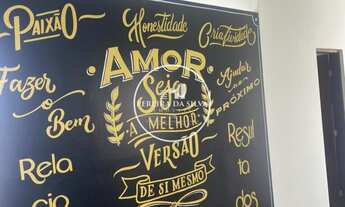 PAIXÃO
Honestidade
Criatividade
AMOR
Fazer
o
Bem
Seja
A MELHOR
VERSÃO
DE SI MESMO
Ajudar
ao
PRÓXIMO
PEREIRA DA SILVA
Rela
cio
Resul
ta
dos